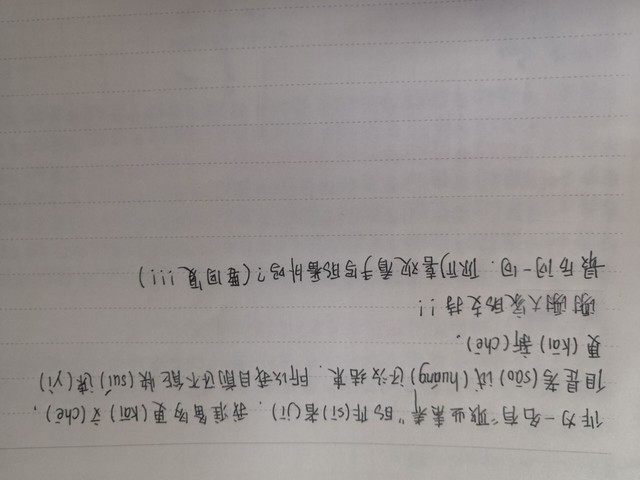 作为一名有"职业素养"的作(sǐ)者(jī)，我准备为更(kāi)文(chē)，
但是考(sāo)试(huang)还没结束，所以我目前还不能快(suí)速(yì)
更(kāi)新(chē)。
谢谢大家的支持!!
最后问一句，你们喜观看手写的番外吗?(要回复!!!)